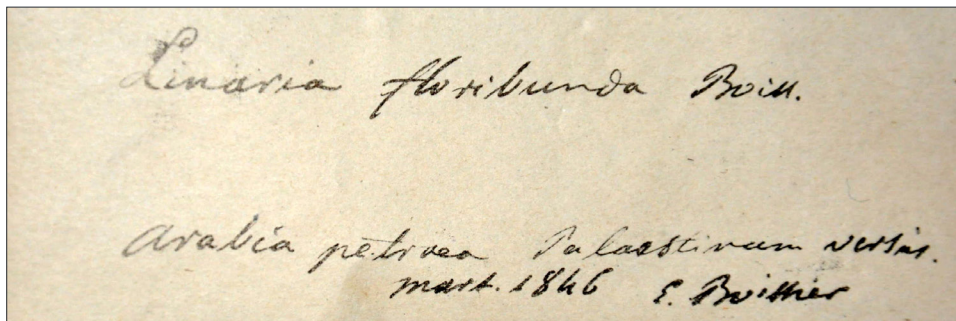 Linaria floribunda Boiss.
Arabia petraea Palaestinam versus.
mart. 1846 E. Boissier